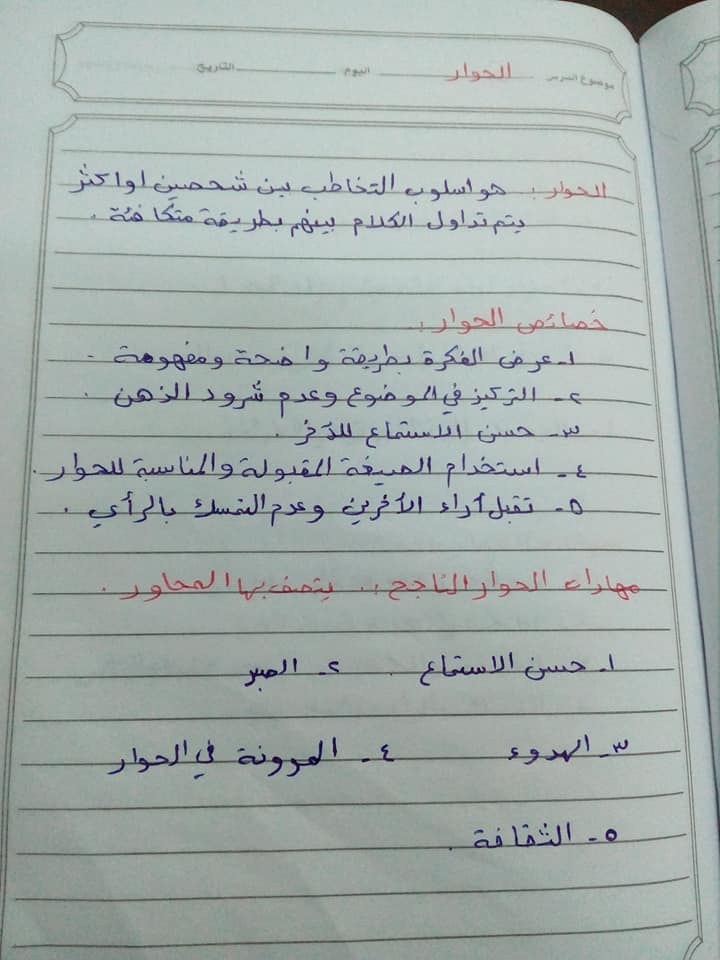 موضوع الدرس الحوار اليوم التاريخ
الحوار : هو اسلوب التخاطب بين شخصين او اكثر
يتم تداول الكلام بينهم بطريقة متكافئة .
خصائص الحوار :
١- عرض الفكرة بطريقة واضحة ومفهومة .
٢- التركيز في الموضوع وعدم شرود الذهن .
٣- حسن الاستماع للآخر .
٤- استخدام الصيغة المقبولة والمناسبة للحوار .
٥- تقبل أراء الآخرين وعدم التمسك بالرأي .
مهارات الحوار الناجح : . يتصف بها المحاور .
١- حسن الاستماع . ٢- الصبر
٣- الهدوء ٤- المرونة في الحوار
٥- الثقافة .